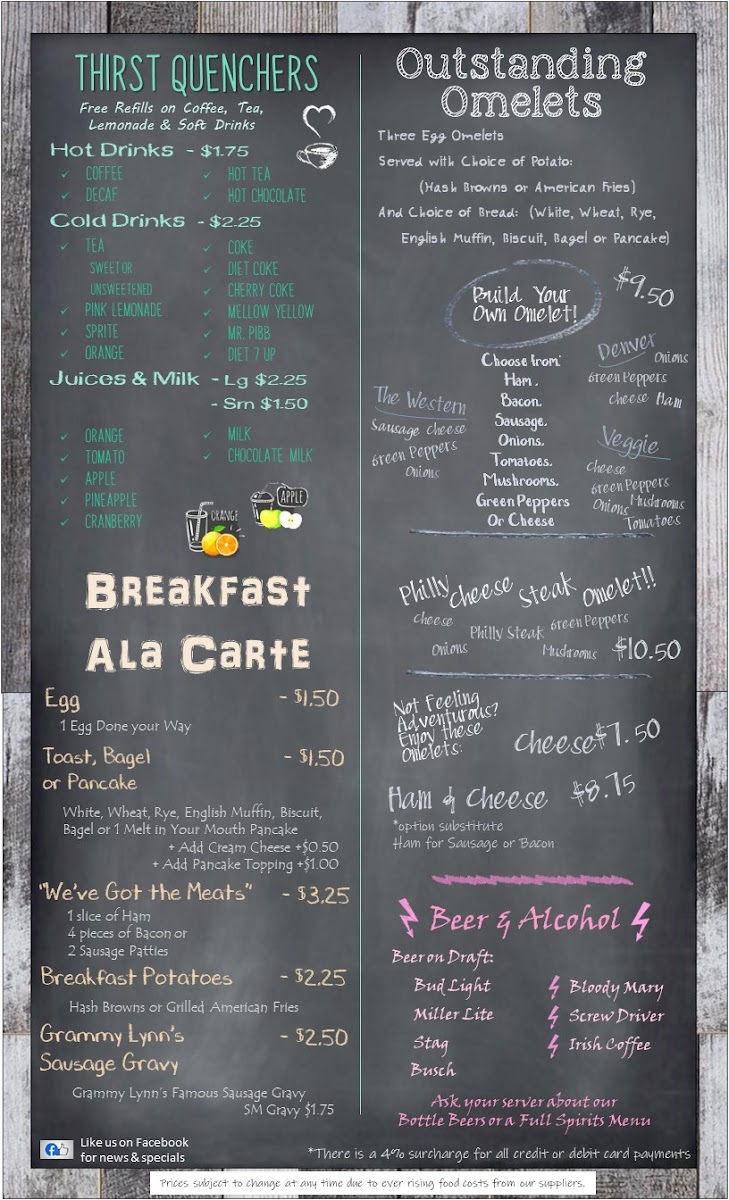 THIRST QUENCHERS
Free Refills on Coffee, Tea,
Lemonade & Soft Drinks
Hot Drinks - $1.75
COFFEE
DECAF
HOT TEA
HOT CHOCOLATE
Cold Drinks - $2.25
TEA
SWEET OR
UNSWEETENED
PINK LEMONADE
SPRITE
ORANGE
COKE
DIET COKE
CHERRY COKE
MELLOW YELLOW
MR. PIBB
DIET 7 UP
Juices & Milk - Lg $2.25
- Sm $1.50
ORANGE
TOMATO
APPLE
PINEAPPLE
CRANBERRY
MILK
CHOCOLATE MILK
ORANGE
APPLE
BREAKFAST
ALA CARTE
Egg - $1.50
1 Egg Done your Way
Toast, Bagel - $1.50
or Pancake
White, Wheat, Rye, English Muffin, Biscuit,
Bagel or 1 Melt in Your Mouth Pancake
+ Add Cream Cheese +$0.50
+ Add Pancake Topping +$1.00
"We've Got the Meats" - $3.25
1 slice of Ham
4 pieces of Bacon or
2 Sausage Patties
Breakfast Potatoes - $2.25
Hash Browns or Grilled American Fries
Grammy Lynn's - $2.50
Sausage Gravy
Grammy Lynn's Famous Sausage Gravy
SM Gravy $1.75
Like us on Facebook
for news & specials
Outstanding
Omelets
Three Egg Omelets
Served with Choice of Potato:
(Hash Browns or American Fries)
And Choice of Bread: (White, Wheat, Rye,
English Muffin, Biscuit, Bagel or Pancake)
Build Your
Own Omelet!
$9.50
Choose from:
Ham.
Bacon.
Sausage.
Onions.
Tomatoes.
Mushrooms.
Green Peppers
Or Cheese
The Western
Sausage Cheese
Green Peppers
Onions
Denver
Onions
Green Peppers
Cheese Ham
Veggie
Cheese
Green Peppers
Onions Mushrooms
Tomatoes
Philly Cheese Steak Omelet!!
Cheese
Onions
Philly Steak
Green Peppers
Mushrooms
$10.50
Not Feeling
Adventurous?
Enjoy these
Omelets:
Cheese $7.50
Ham & Cheese $8.75
*option substitute
Ham for Sausage or Bacon
Beer & Alcohol
Beer on Draft:
Bud Light
Miller Lite
Stag
Busch
Bloody Mary
Screw Driver
Irish Coffee
Ask your server about our
Bottle Beers or a Full Spirits Menu
*There is a 4% surcharge for all credit or debit card payments
Prices subject to change at any time due to ever rising food costs from our suppliers.